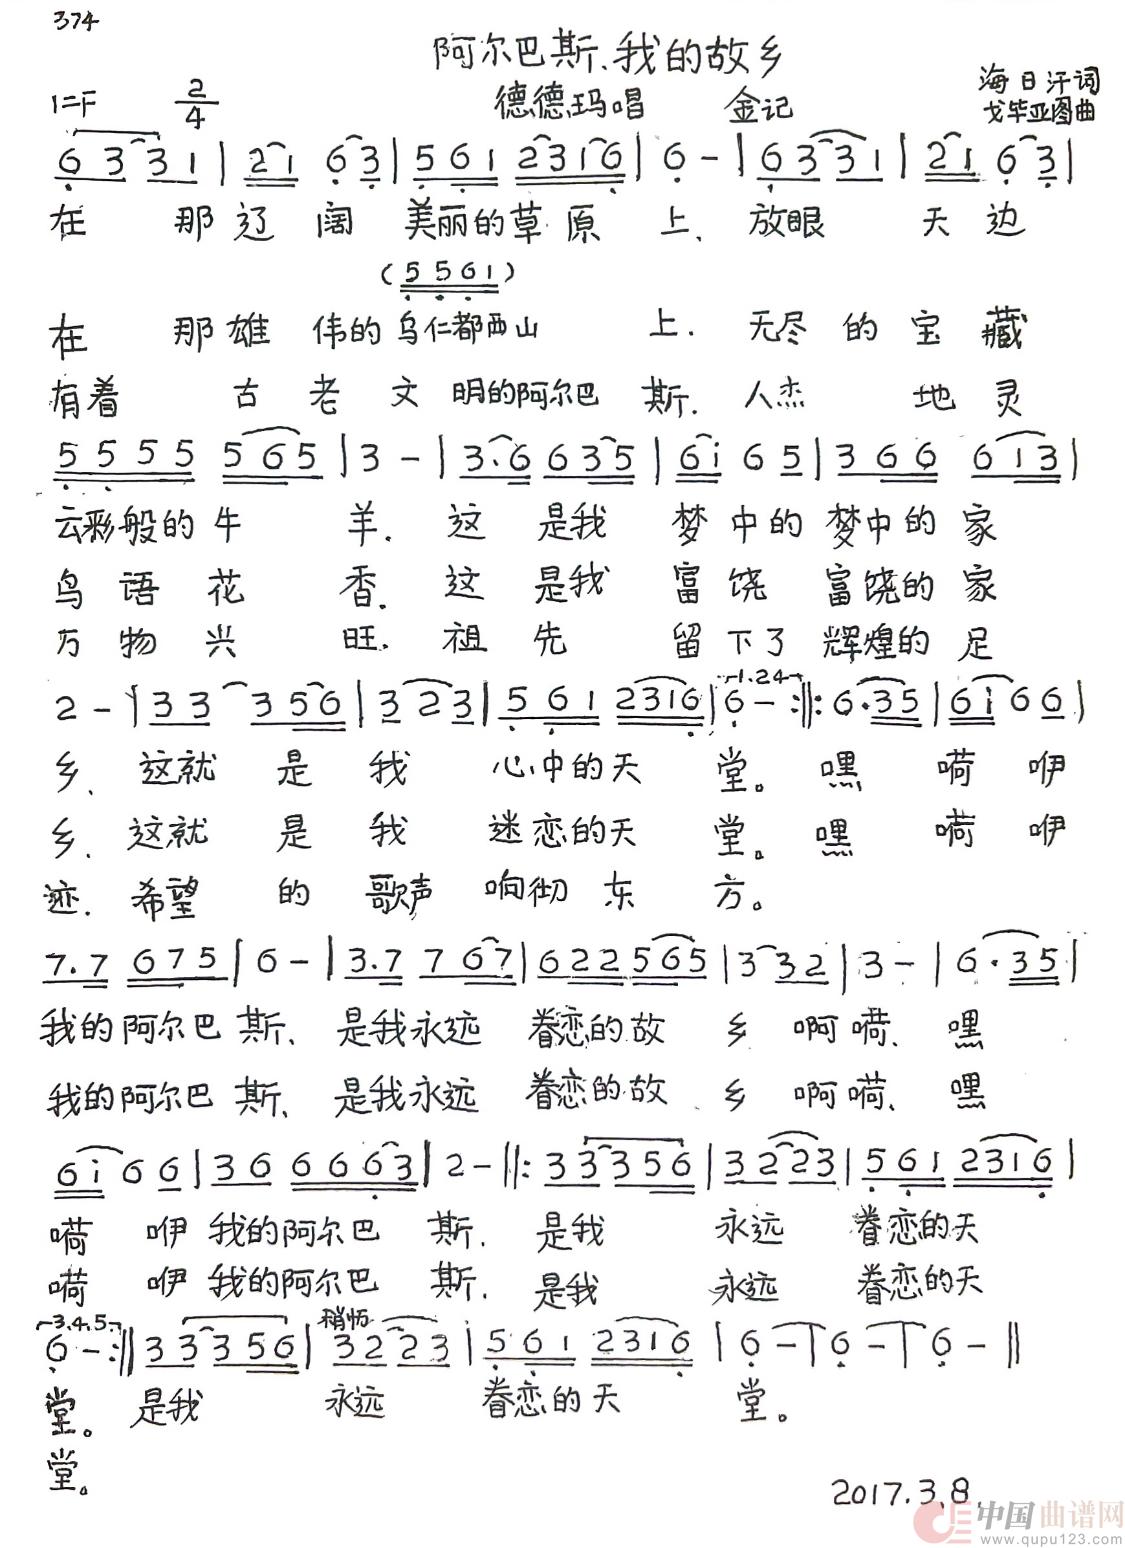 374
阿尔巴斯.我的故乡
1=F 2/4 德德玛唱 金记 海日汗词
戈毕亚图曲
6 3 3 1 | 2 1 6 3 | 5 6 1 2 3 1 6 | 6 - | 6 3 3 1 | 2 1 6 3 |
在 那 辽 阔 美丽的草 原 上、放眼 天 边
(5 5 6 1)
在 那 雄 伟的乌仁都西山 上. 无尽 的 宝 藏
有着 古 老 文 明的阿尔巴 斯. 人杰 地 灵
5 5 5 5 5 6 5 | 3 - | 3. 6 6 3 5 | 6 i 6 5 | 3 6 6 6 1 3 |
云彩般的 牛 羊. 这 是我 梦 中的 梦中的 家
鸟 语 花 香. 这 是我 富 饶 富饶的 家
万 物 兴 旺. 祖 先 留 下了 辉煌的 足
2 - | 3 3 3 5 6 | 3 2 3 | 5 6 1 2 3 1 6 | 1.2 4 6 - :||: 6. 3 5 | 6 i 6 6 |
乡、这就 是 我 心中的天 堂。嘿 嗬 咿
乡、这就 是 我 迷恋的天 堂。嘿 嗬 咿
迹. 希望 的 歌声 响彻 东 方。
7. 7 6 7 5 | 6 - | 3. 7 7 6 7 | 6 2 2 5 6 5 | 3 3 2 | 3 - | 6 . 3 5 |
我的阿尔巴 斯、 是我永远 眷恋的故 乡 啊嗬、嘿
我的阿尔巴 斯、 是我永远 眷恋的故 乡 啊嗬、嘿
6 i 6 6 | 3 6 6 6 6 3 | 2 - ||: 3 3 3 5 6 | 3 2 2 3 | 5 6 1 2 3 1 6 |
嗬 咿 我的阿尔巴 斯. 是我 永远 眷恋的天
嗬 咿 我的阿尔巴 斯. 是我 永远 眷恋的天
3.4.5 稍慢
6 - :|| 3 3 3 5 6 | 3 2 2 3 | 5 6 1 2 3 1 6 | 6 - | 6 - | 6 - ||
堂。 是我 永远 眷恋的天 堂。
堂。
2017.3.8.
中国曲谱网
www.qupu123.com